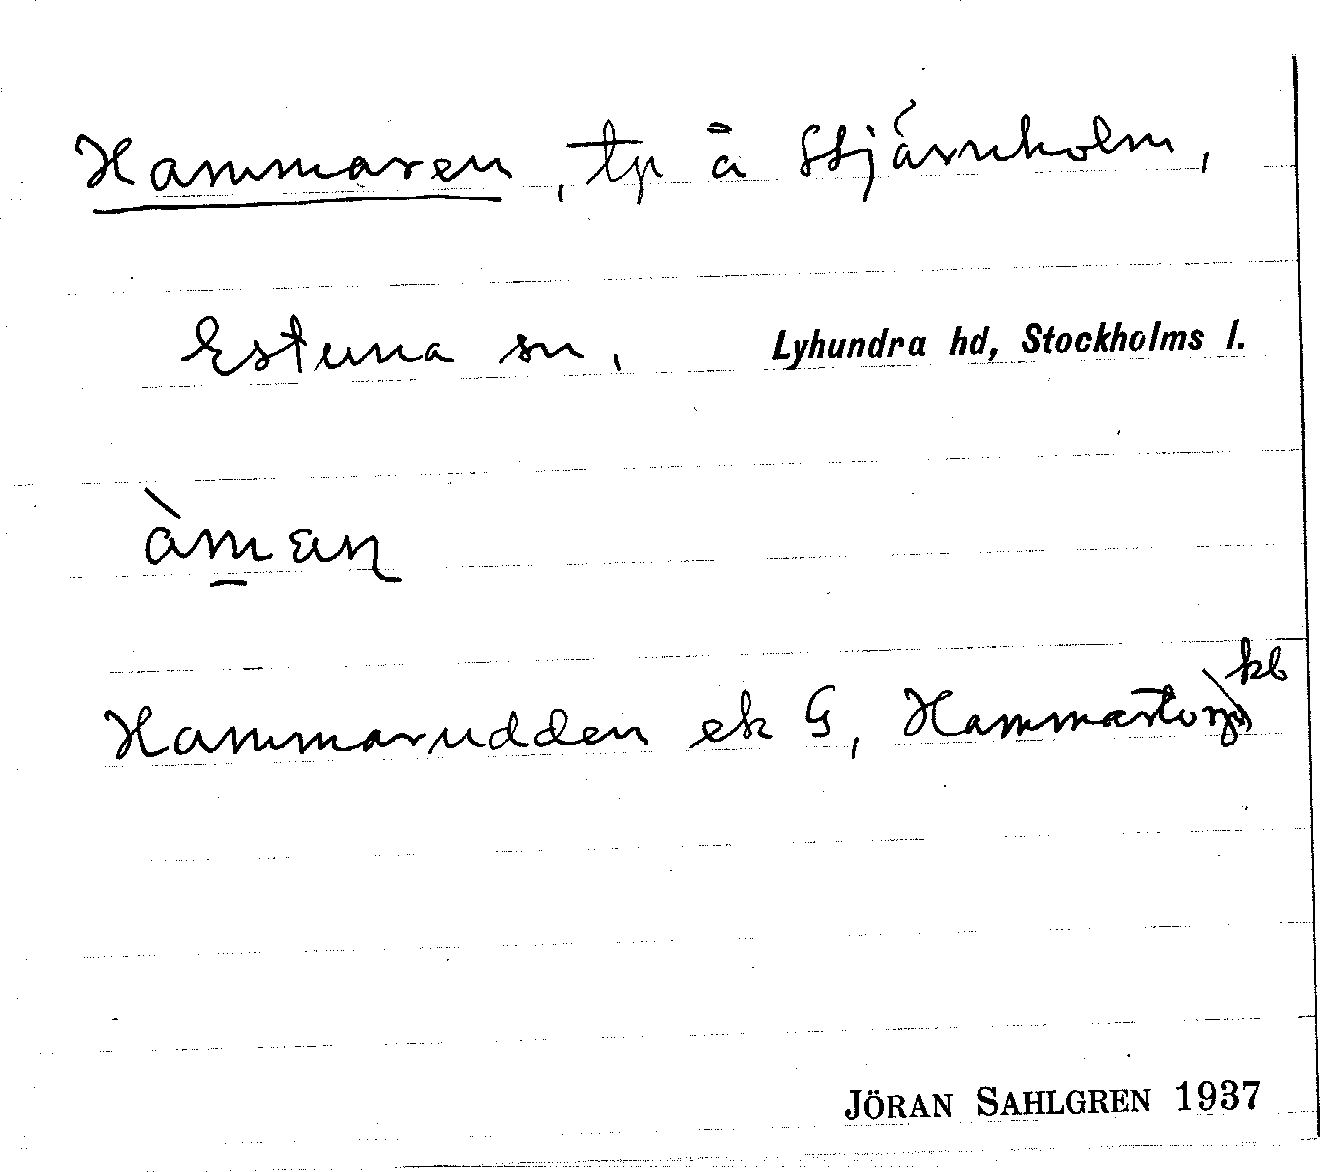 Hammaren, tp å Stjärnholm,
Estuna sn, Lyhundra hd, Stockholms l.
àmaɳ
Hammarudden ek G, Hammartorp kb
JÖRAN SAHLGREN 1937